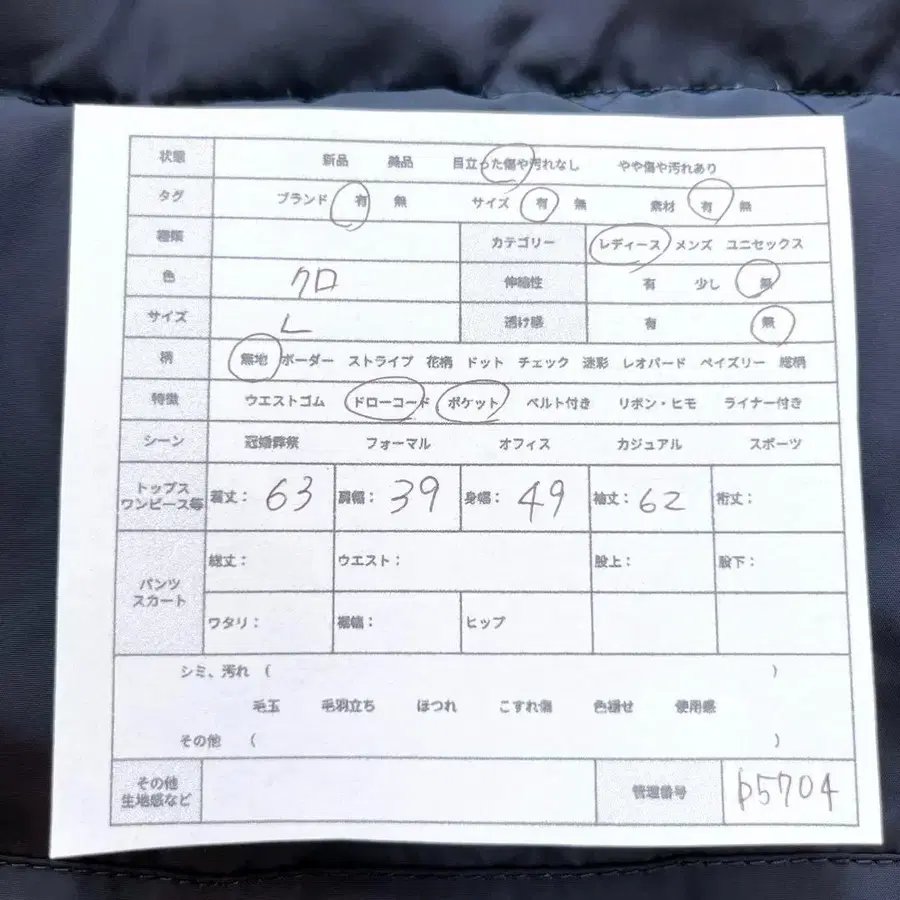 状態 新品 美品 目立った傷や汚れなし やや傷や汚れあり
タグ ブランド 有 無 サイズ 有 無 素材 有 無
種類 カテゴリー レディース メンズ ユニセックス
色 クロ 伸縮性 有 少し 無
サイズ L 透け感 有 無
柄 無地 ボーダー ストライプ 花柄 ドット チェック 迷彩 レオパード ペイズリー 総柄
特徴 ウエストゴム ドローコード ポケット ベルト付き リボン・ヒモ ライナー付き
シーン 冠婚葬祭 フォーマル オフィス カジュアル スポーツ
トップス
ワンピース等 着丈: 63 肩幅: 39 身幅: 49 袖丈: 62 裄丈:
パンツ
スカート 総丈: ウエスト: 股上: 股下:
ワタリ: 裾幅: ヒップ
シミ、汚れ ( )
毛玉 毛羽立ち ほつれ こすれ傷 色褪せ 使用感
その他 ( )
その他
生地感など 管理番号 p5704